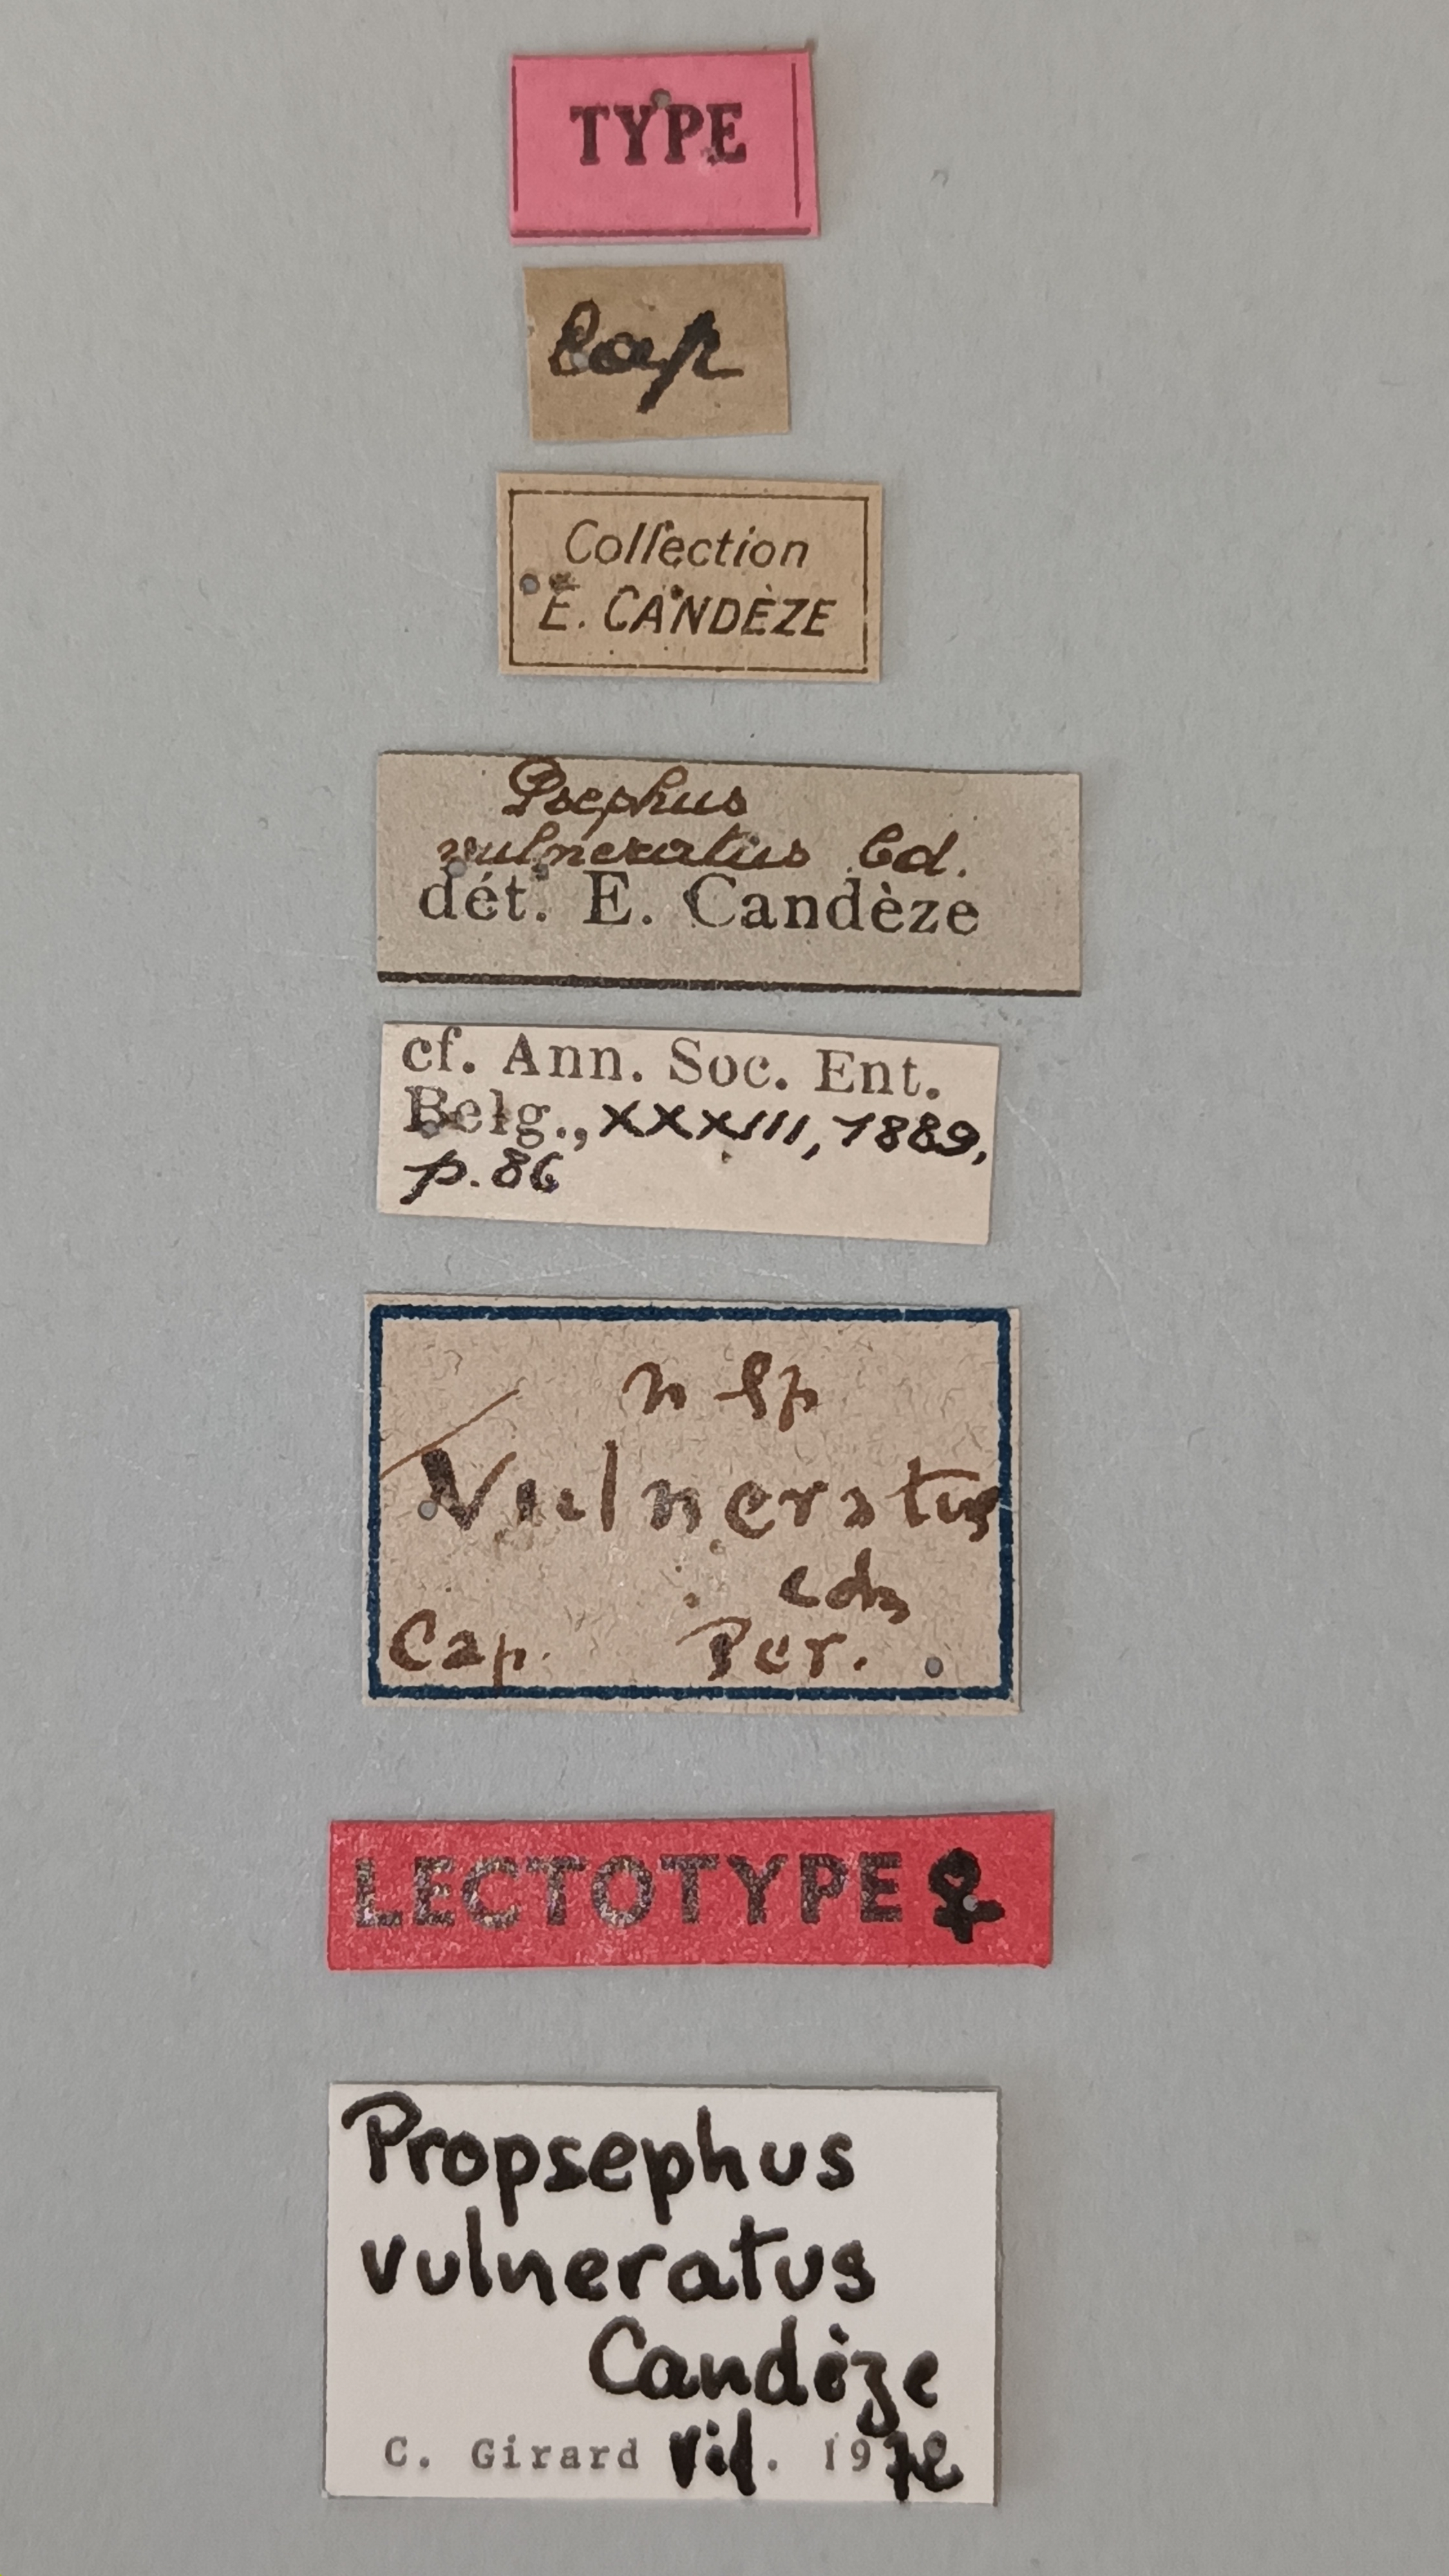 TYPE
Cap
Collection
E. CANDÈZE
Psephus
vulneratus Cd.
dét. E. Candèze
cf. Ann. Soc. Ent.
Belg., XXXIII, 1889,
p. 86
n sp
Vulneratus
cdz
Cap. Per.
LECTOTYPE ♀
Propsephus
vulneratus
Candèze
C. Girard vid. 19